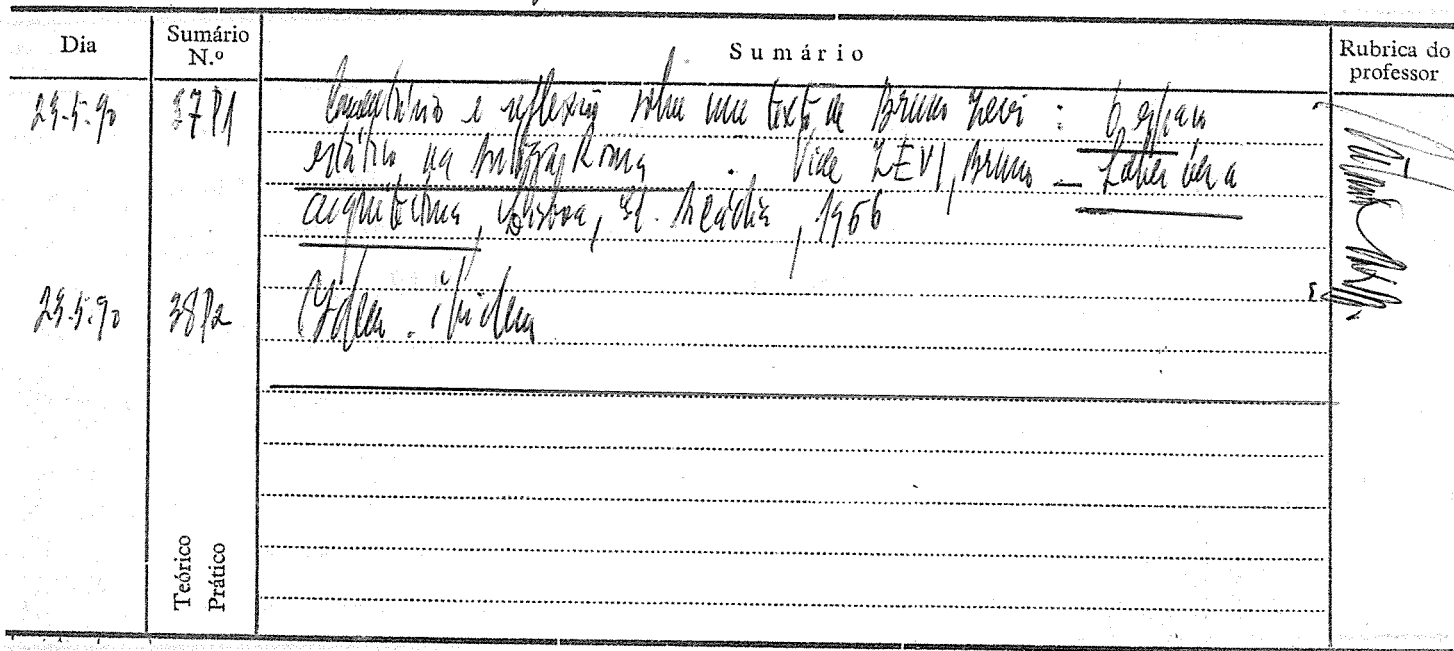 Dia Sumário N.º Sumário Rubrica do professor
23-5-90 37 P1 Comentário e reflexão sobre um texto de Bruno Zevi : O espaço
estático na antiga Roma . Vide ZEVI, Bruno – Saber ver a
arquitectura, Lisboa, Ed. Arcádia, 1966
23-5-90 38 P2 Idem. ibidem
Teórico
Prático